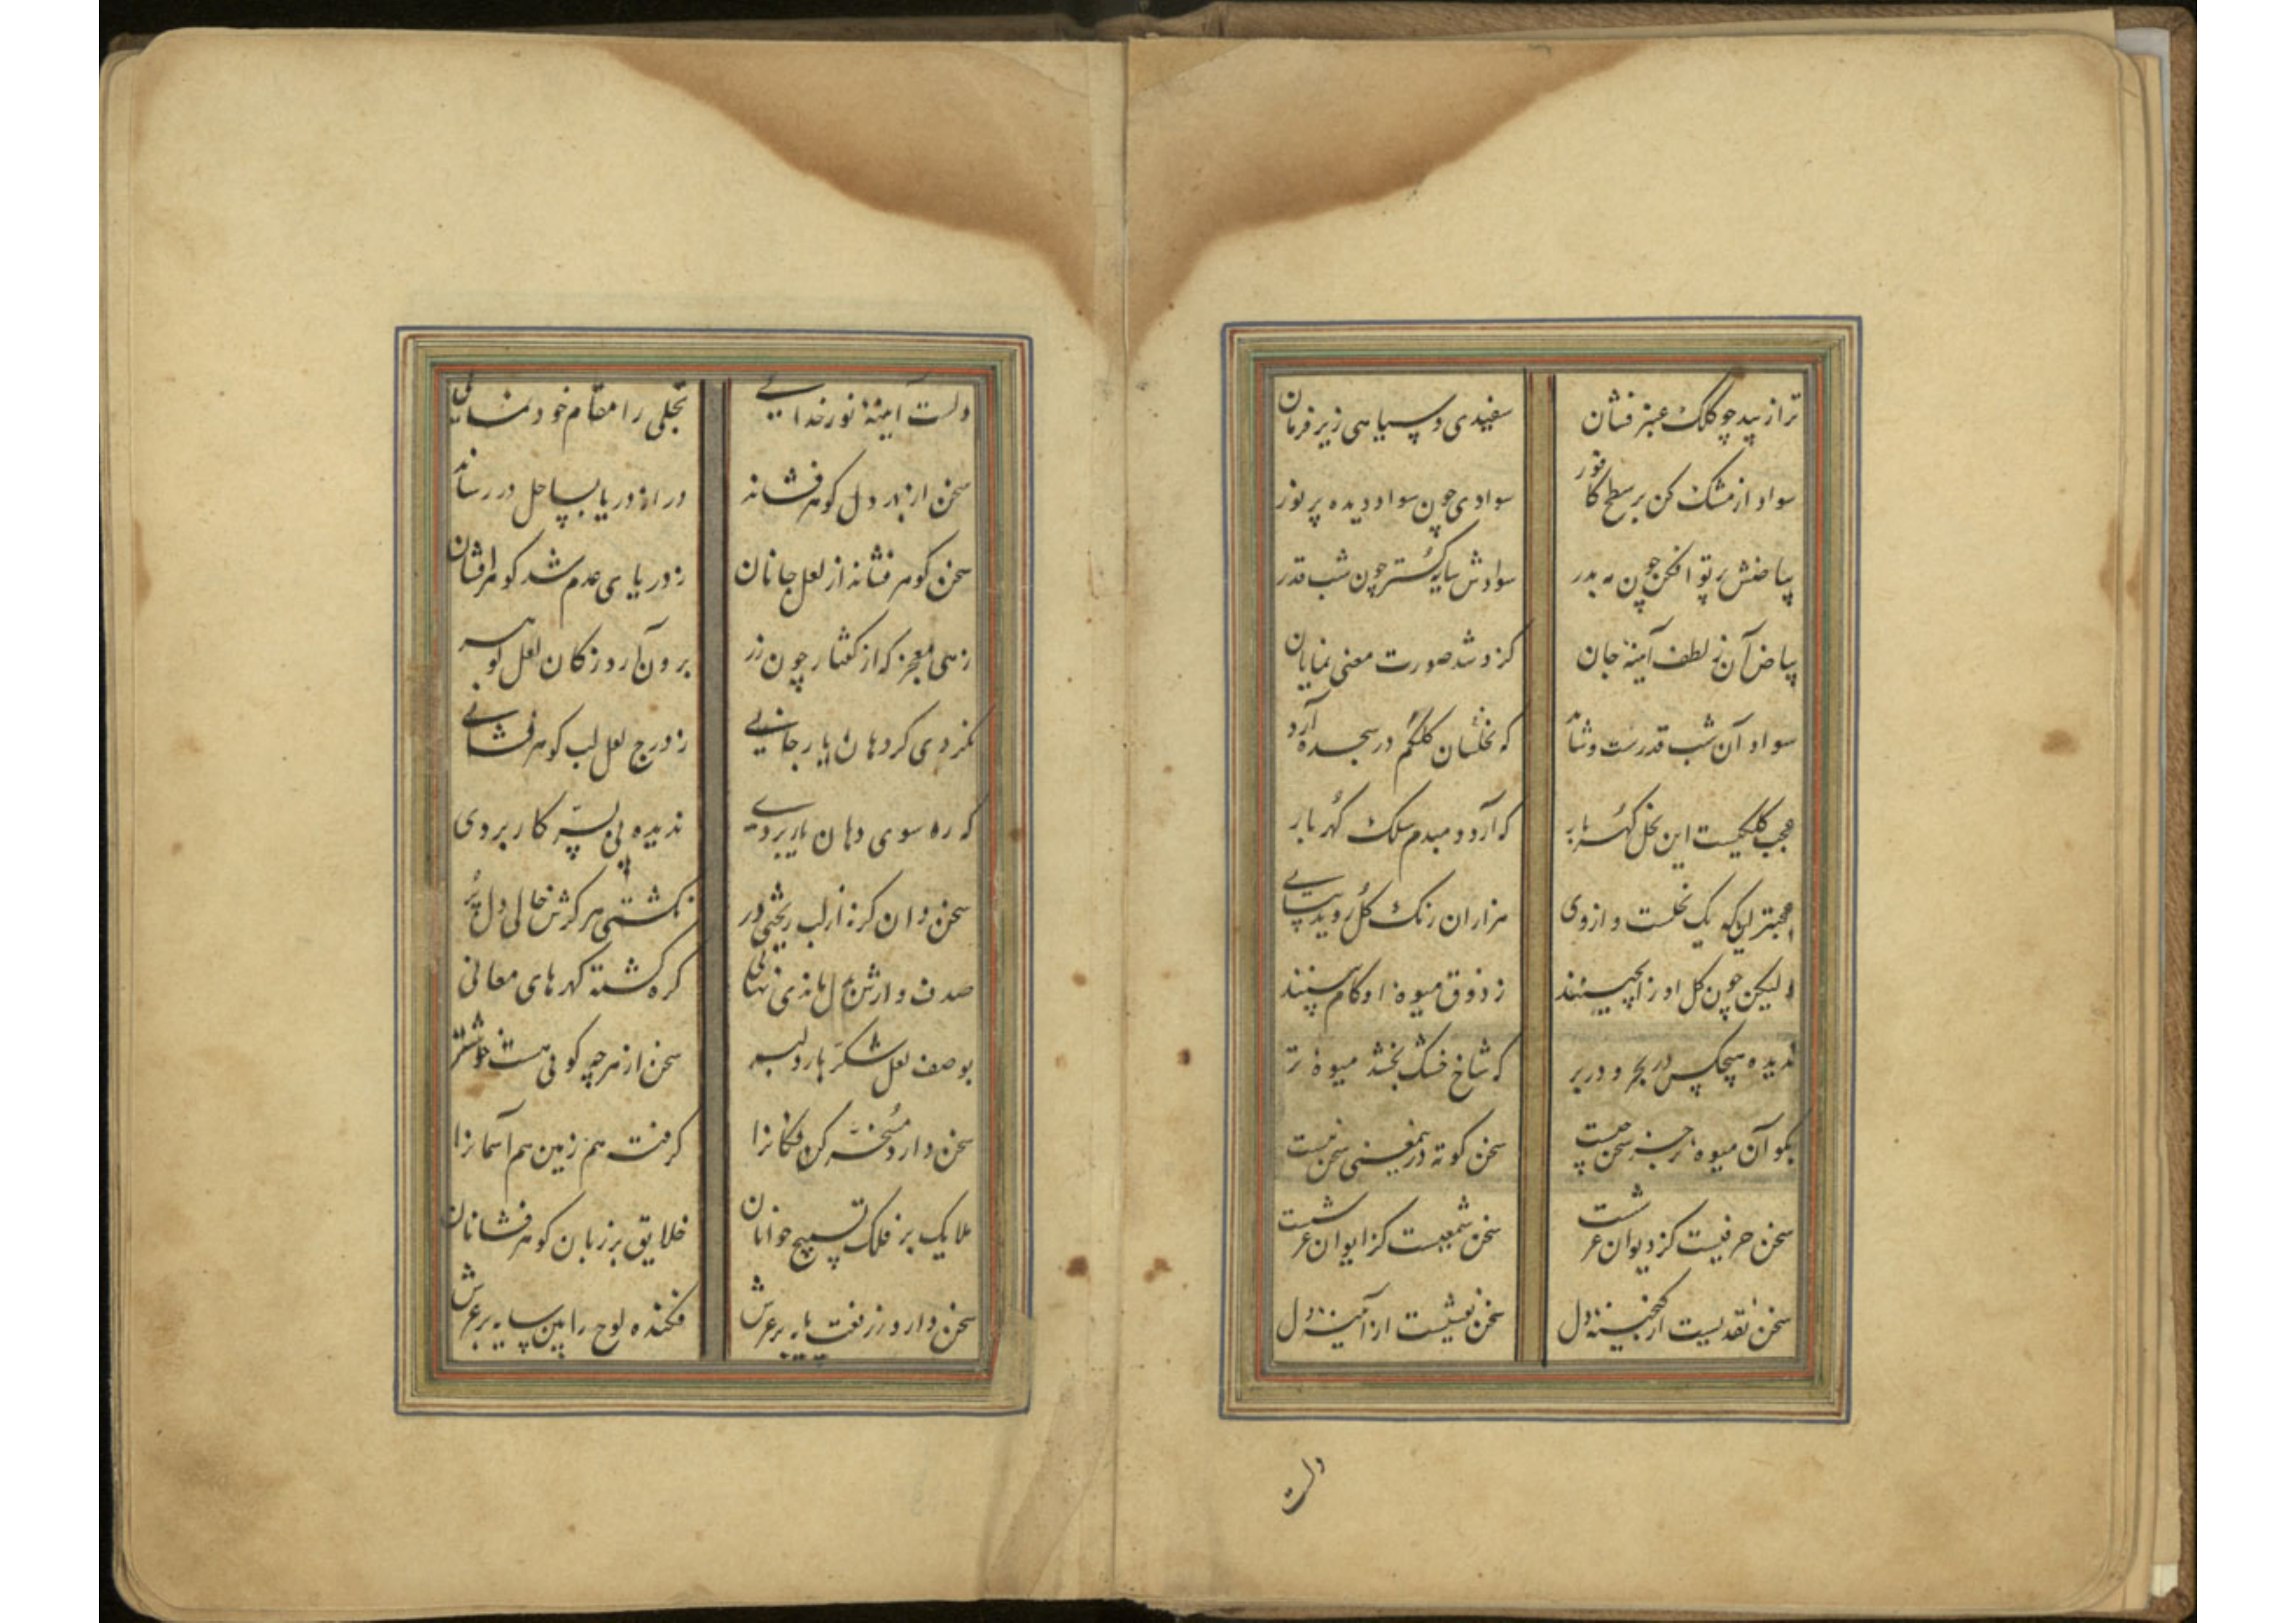 ترا زیبد چو کلک عنبر فشان سفیدی و سیاهی زیر فرمان
سواد از مشک کن بر سطح کافور سوادی چون سواد دیده پر نور
بیاضش پرتو افکن چون مه بدر سوادش سایه گستر چون شب قدر
بیاض آن ز لطف آینهٔ جان کزو شد صورت معنی نمایان
سواد آن شب قدرست و شاید که نخلسان کلکم در سجده آرد
عجب کلکیست این نخل گهربار که آرد دمبدم سلک گهربار
عجبتر این که یک نخلست و از وی هزاران رنگ گل روید پیاپی
لیکن چون گل او را بچینند ز ذوق میوهٔ او کام بینند
ندیده هیچکس در بحر و در بر که شاخ خشک بخشد میوهٔ تر
بگو آن میوهٔ تر جز سخن چیست سخن کوته درین معنی سخن نیست
سخن حرفیست کز دیوان عرشست سخن شمعیست کز ایوان عرشست
سخن نقدیست از گنجینهٔ دل سخن نقشیست از آیینهٔ دل
دلست
دلست آینهٔ نور خدایی تجلی را مقام خودنمایی
سخن از بحر دل گوهر فشاند در از دریا بساحل در رساند
سخن گوهر فشاند از لعل جانان ز دریای عدم شد گوهر افشان
زهی معجز که از گفتار چون زر برون آرد ز کان لعل گوهر
نکردی گر دهان یار جایی ز درج لعل لب گوهر فشانی
که ره سوی دهان یار بردی ندیده پی بسر کار بردی
سخن دان گر نه از لب ریختی در نگشتی هرگزش خالی دل پر
صدف وارش بدل ماندی نهانی گره گشته گهرهای معانی
بوصف لعل شکر بار دلبر سخن از هر چه گویی هست خوشتر
سخن دارد مسخر کن فکانرا گرفت هم زمین هم آسمانرا
ملایک بر فلک تسبیح خوانان خلایق بر زبان گوهر فشانان
سخن دارد ز رفعت پایه بر عرش فکنده لوح را بین سایه بر عرش